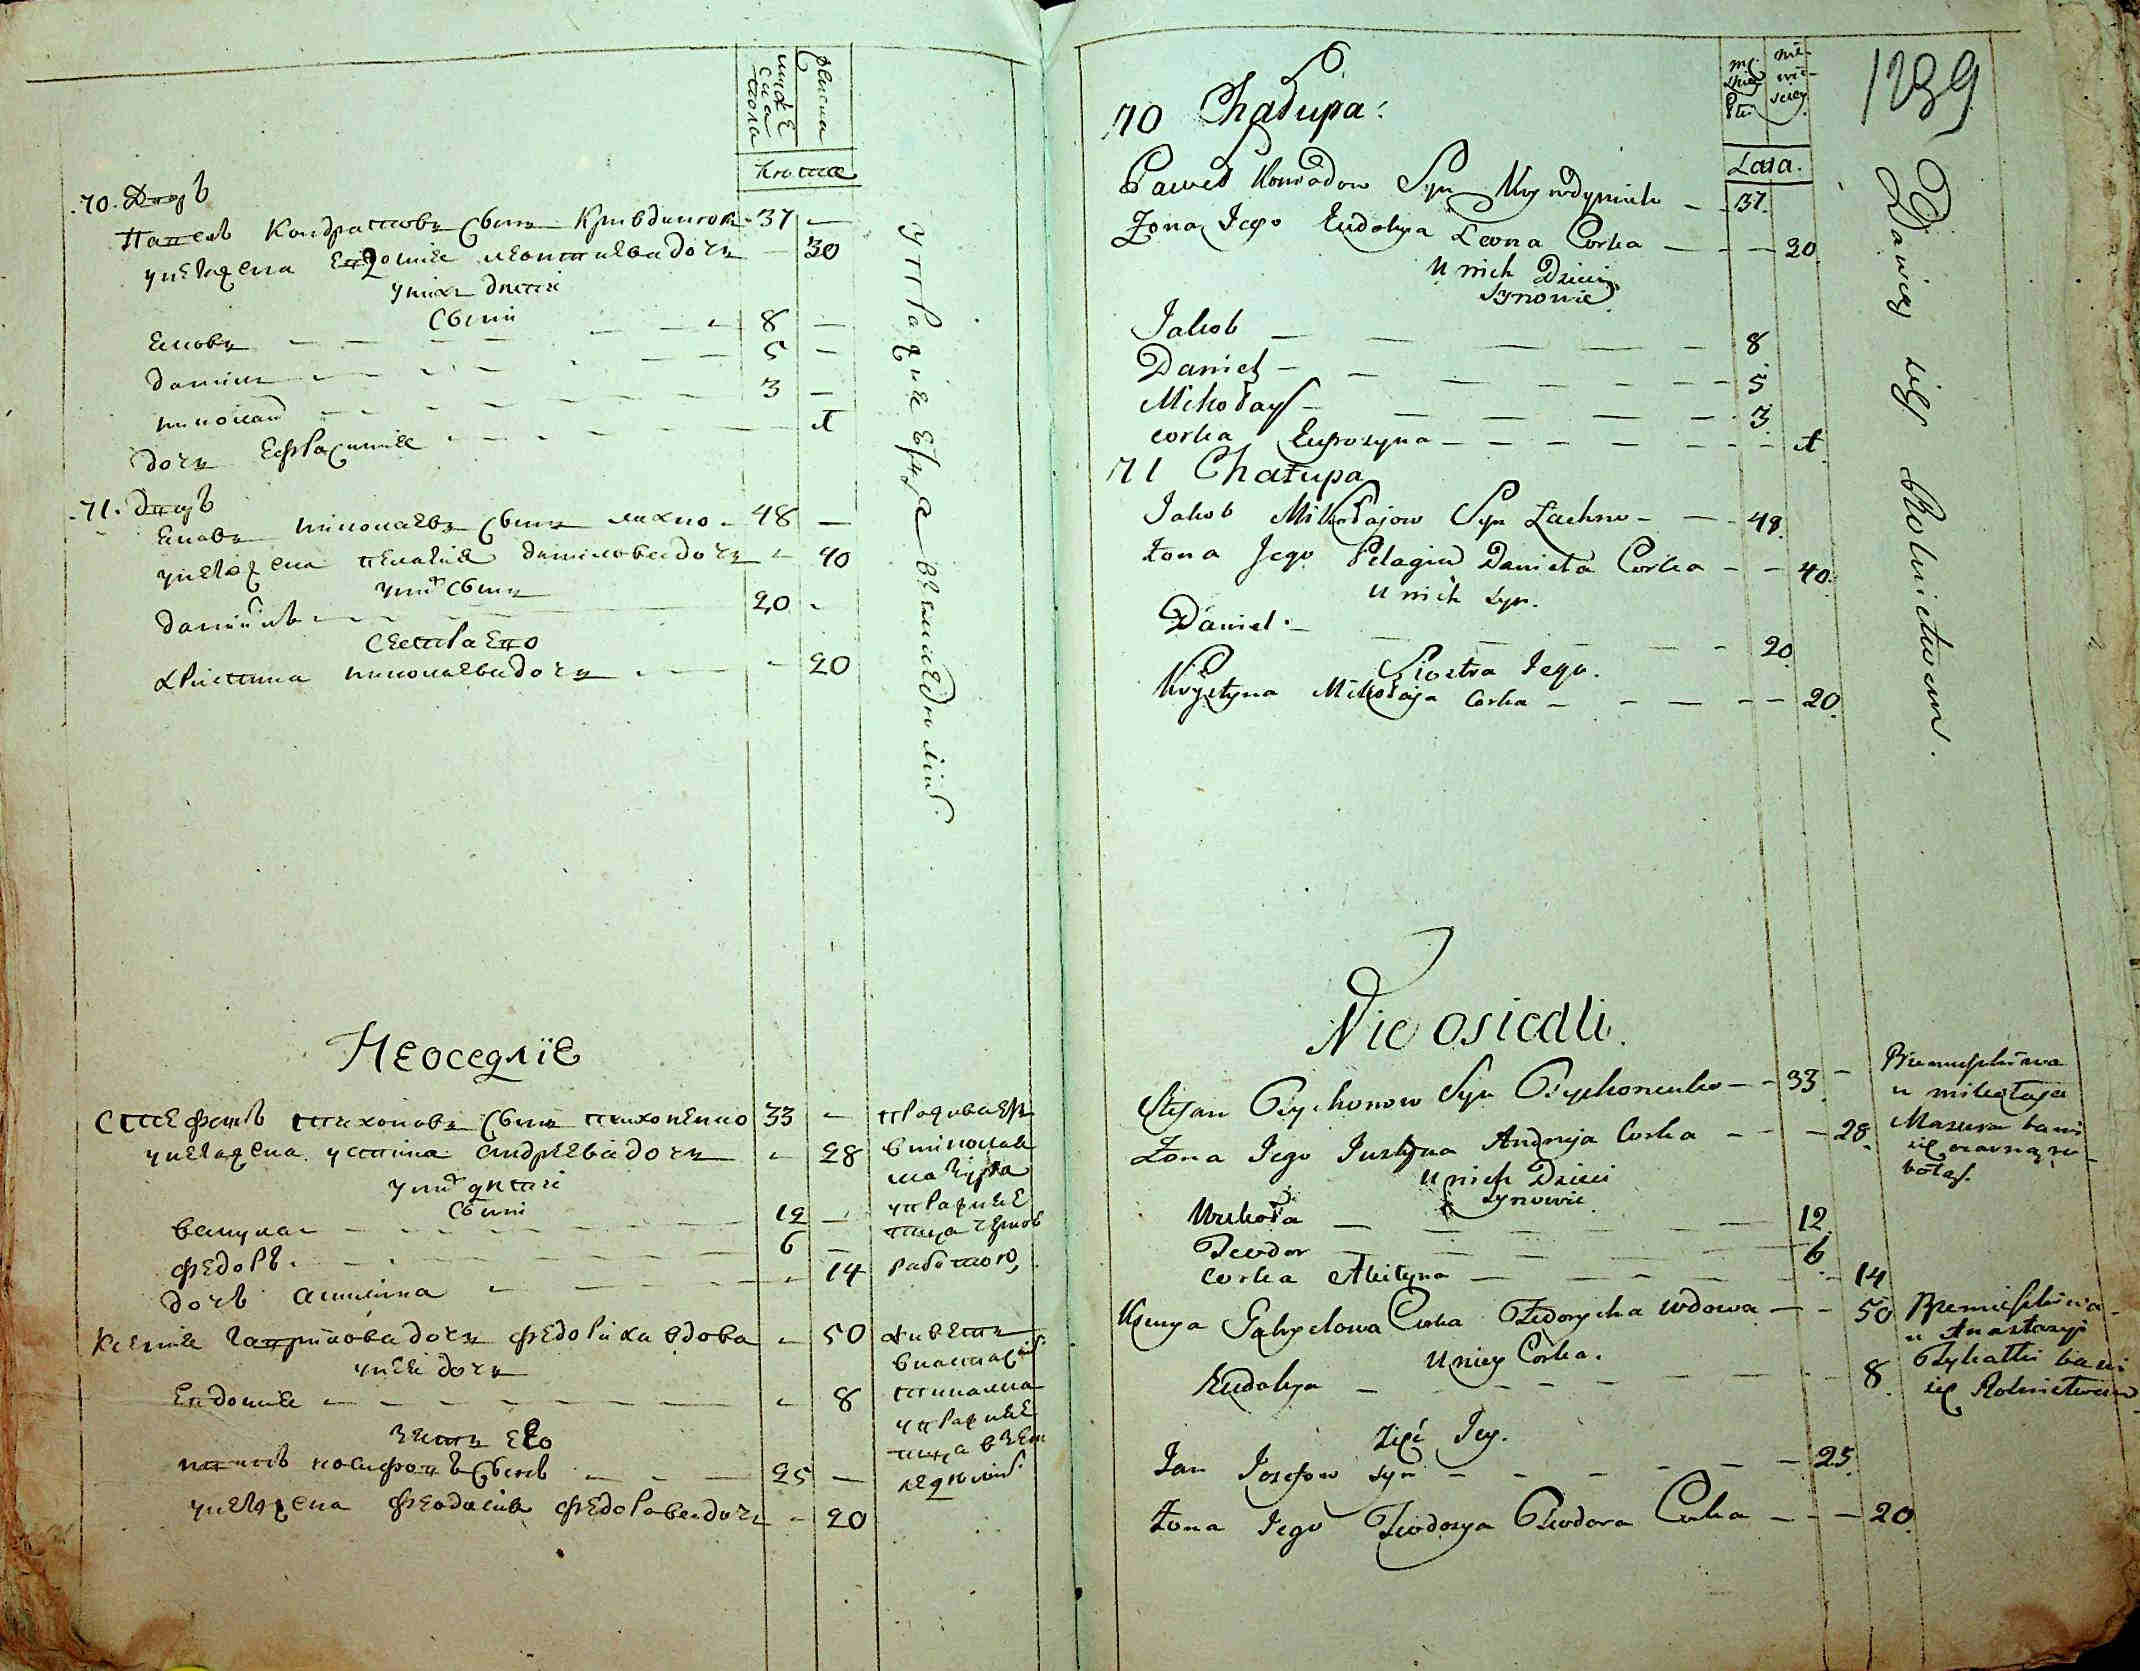 мужеска
пола
женска
лета
70. Двор
Павел Кондратов Сын Кривдинюк 37 —
у него жена Евдокия Леонтиева дочь — 30
у них дети
Сыни
Яков — 8 —
Данил — 5 —
Николай — 3 —
дочь Ефросиния — 1
71. двор
Яков Николаев Сын Лахно 48 —
у него жена Пелагия Данилова дочь — 40
у них Сын
Даниил — 20 —
Сестра Его
Христина Николаева дочь — 20
Неоседліе
Стефан Тихонов Сын Тихоненко 33 —
у него жена Устина Андреева дочь — 28
у них дети
Сыни
Вакула — 12 —
Федор — 6 —
дочь Акилина — 14
Ксения Гаврилова дочь Федориха вдова — 50
у ней дочь
Евдокия — 8
Зять Его
Иван Иосифов Сын — 25 —
у него жена Феодосия Федорова дочь — 20
проживает
в Николая
Мазура
упражне
ется черною
работою
живет
в Настасіи
упражне
ется в зем
леделіи
1239
Lata.
70 Chałupa:
Paweł Konradow Syn Krywdyniuk — 37.
Żona Jego Eudokya Leona Corka — — — 30
U nich Dzieci
Synowie
Jakob — 8
Daniel — 5
Mikołay — 3
corka Eufrozyna — 1
71 Chałupa
Jakob Mikołajow Syn Lachno — — 48.
Żona Jego Pelagia Danieła Corka — — 40.
U nich Syn.
Daniel — 20
Siostra Jego.
Krystyna Mikołaja Corka — 20.
Bawią się Rolnictwem.
Nie osiedli.
Stefan Tychonow Syn Tychonenko — 33 —
Żona Jego Justyna Andryja Corka — 28.
U nich Dzieci
Synowie
Wukoła — 12.
Teodor — 6
Corka Akityna — 14
Ksenya Gabryelowa Corka Fedorycha wdowa — 50
U niey Corka.
Eudokya — 8.
Zięć Jey.
Jan Jozefow Syn — 25.
Żona Jego Teodozya Teodora Corka — 20.
Przemieszkiwa
u Mikołaja
Mazura bawi
się czarną ro-
botą.
Przemieszkiwa
u Anastazyi
bawi
się Rolnictwem